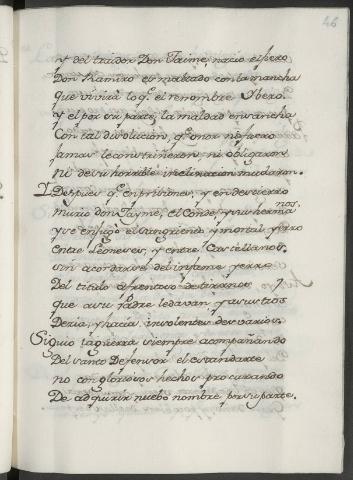 46
y del traidor Don Jaime, nacio el fiero
Don Ramiro es maltado con la mancha
que vivirá lo q. el renombre Ibero
y el por su parte, la maldad ensancha
Con tal disolucion, q. onor no fuero
jamas le constriñeron, ni obligaron
ni de su horrible inclinacion mudaron.
Despues q. en prisiones, y en destierro
murio don Jayme, el Conde, y sus hermanos
y se enjugó el sangriento, y mortal yerro
Entre Leoneses, y entre Castellanos.
sin acordarse del infame yerro
Del titulo afrentoso de tiranos
que a su Padre le davan y a sus tios
Dezia, y hacia insolentes desvarios.
Siguio la guerra siempre acompañando
Del santo Defensor el estandarte
no con gloriosos hechos procurando
De adquirir nuebo nombre por su parte.